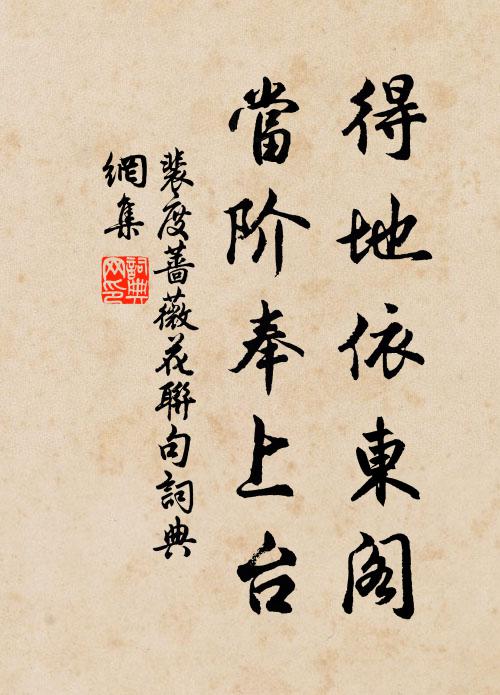 得地依東阁
當阶奉上台
裴度薔薇花聯句詞典
網集
詞典
网印